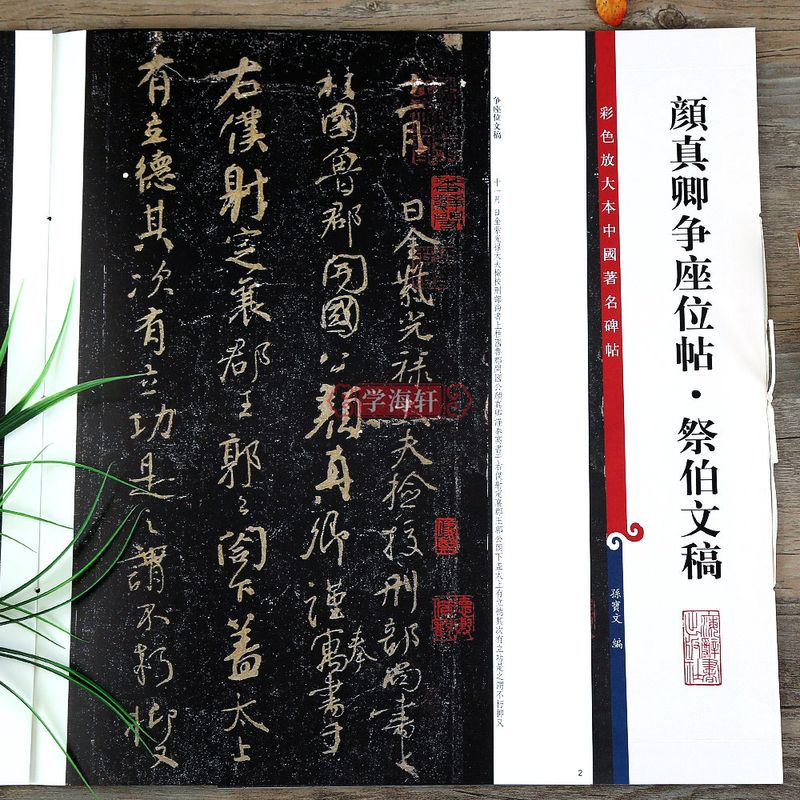 顔真卿争座位帖·祭伯文稿
彩色放大本中國著名碑帖
孫寶文 編
海辭書出版社
争座位文稿
十一月 日金紫光禄大夫檢校刑部尚書上柱國魯郡開國公顔真卿謹奉寓書于右僕射定襄郡王郭公閤下蓋太上有立德其次有立功是之謂不朽抑又
十一月 日金紫光禄大夫檢校刑部尚書上
柱國魯郡開國公顔真卿謹奉寓書于
右僕射定襄郡王郭公閤下蓋太上
有立德其次有立功是之謂不朽抑又
学海轩
2